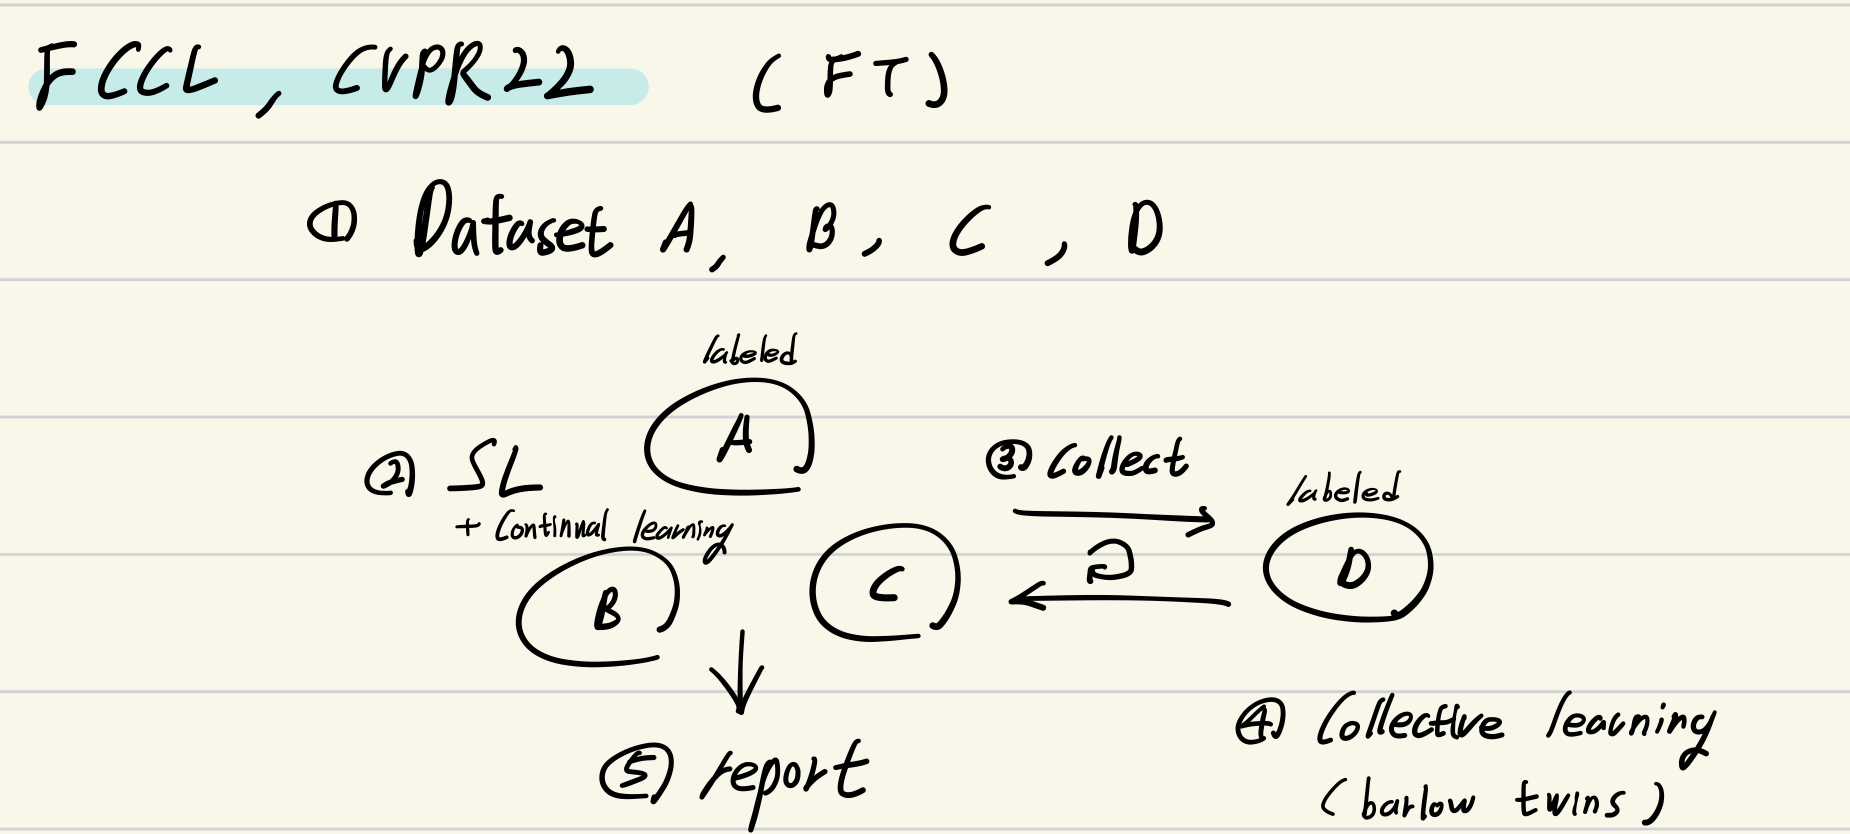 FCCL, CVPR22 (FT)
① Dataset A, B, C, D
labeled
A
② SL
+ Continual learning
B
C
③ Collect
labeled
D
④ Collective learning
(barlow twins)
⑤ report